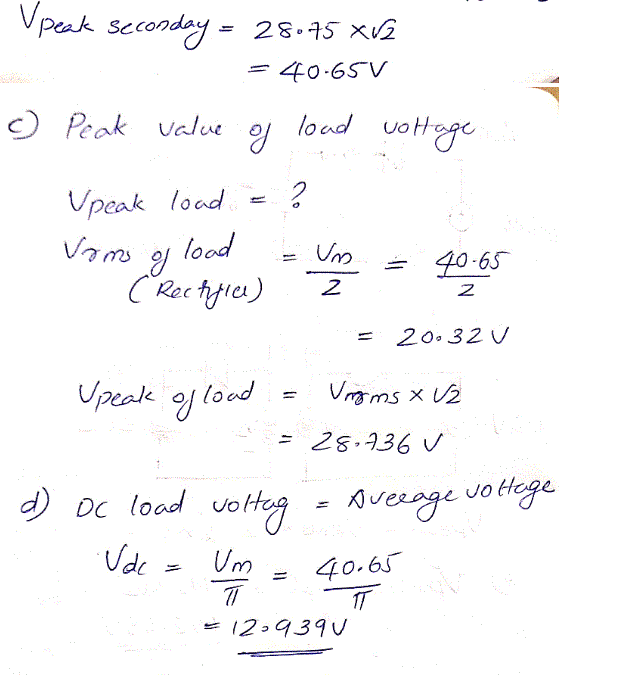 Vpeak seconday = 28.75 x√2
= 40.65V
c) Peak value of load voltage
Vpeak load = ?
Vrms of load = Vm/2 = 40.65/2
(Rectifier)
= 20.32 V
Vpeak of load = Vrms x √2
= 28.736 V
d) DC load voltag = Average voltage
Vdc = Vm/π = 40.65/π
= 12.939V